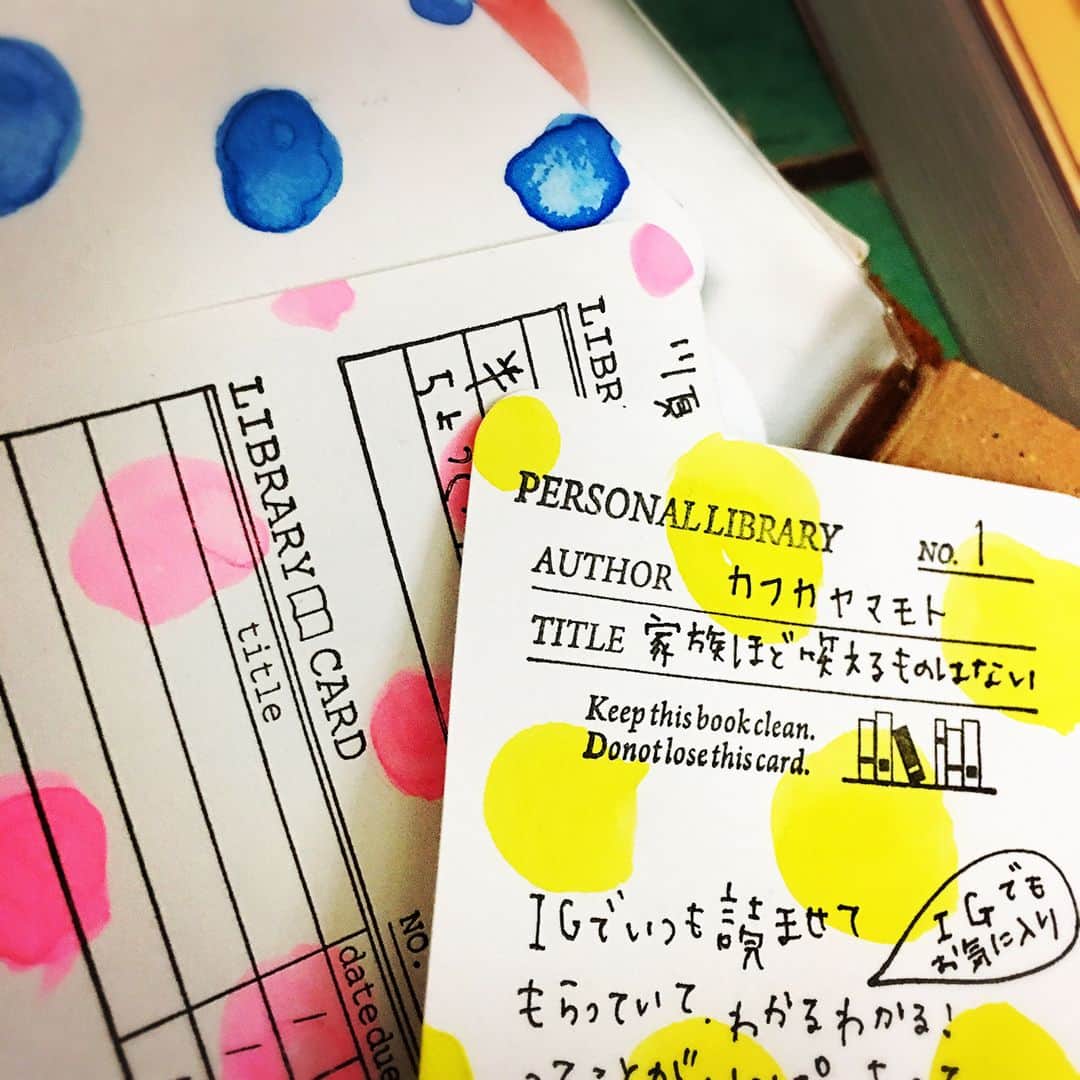 PERSONAL LIBRARY
NO. 1
AUTHOR カフカヤマモト
TITLE 家族ほど笑えるものはない
Keep this book clean.
Do not lose this card.
IGでいつも読ませて
もらっていて、わかるわかる!
ってことが
IGでも
お気に入り
LIBRARY CARD
title
NO.
datedue
LIBR